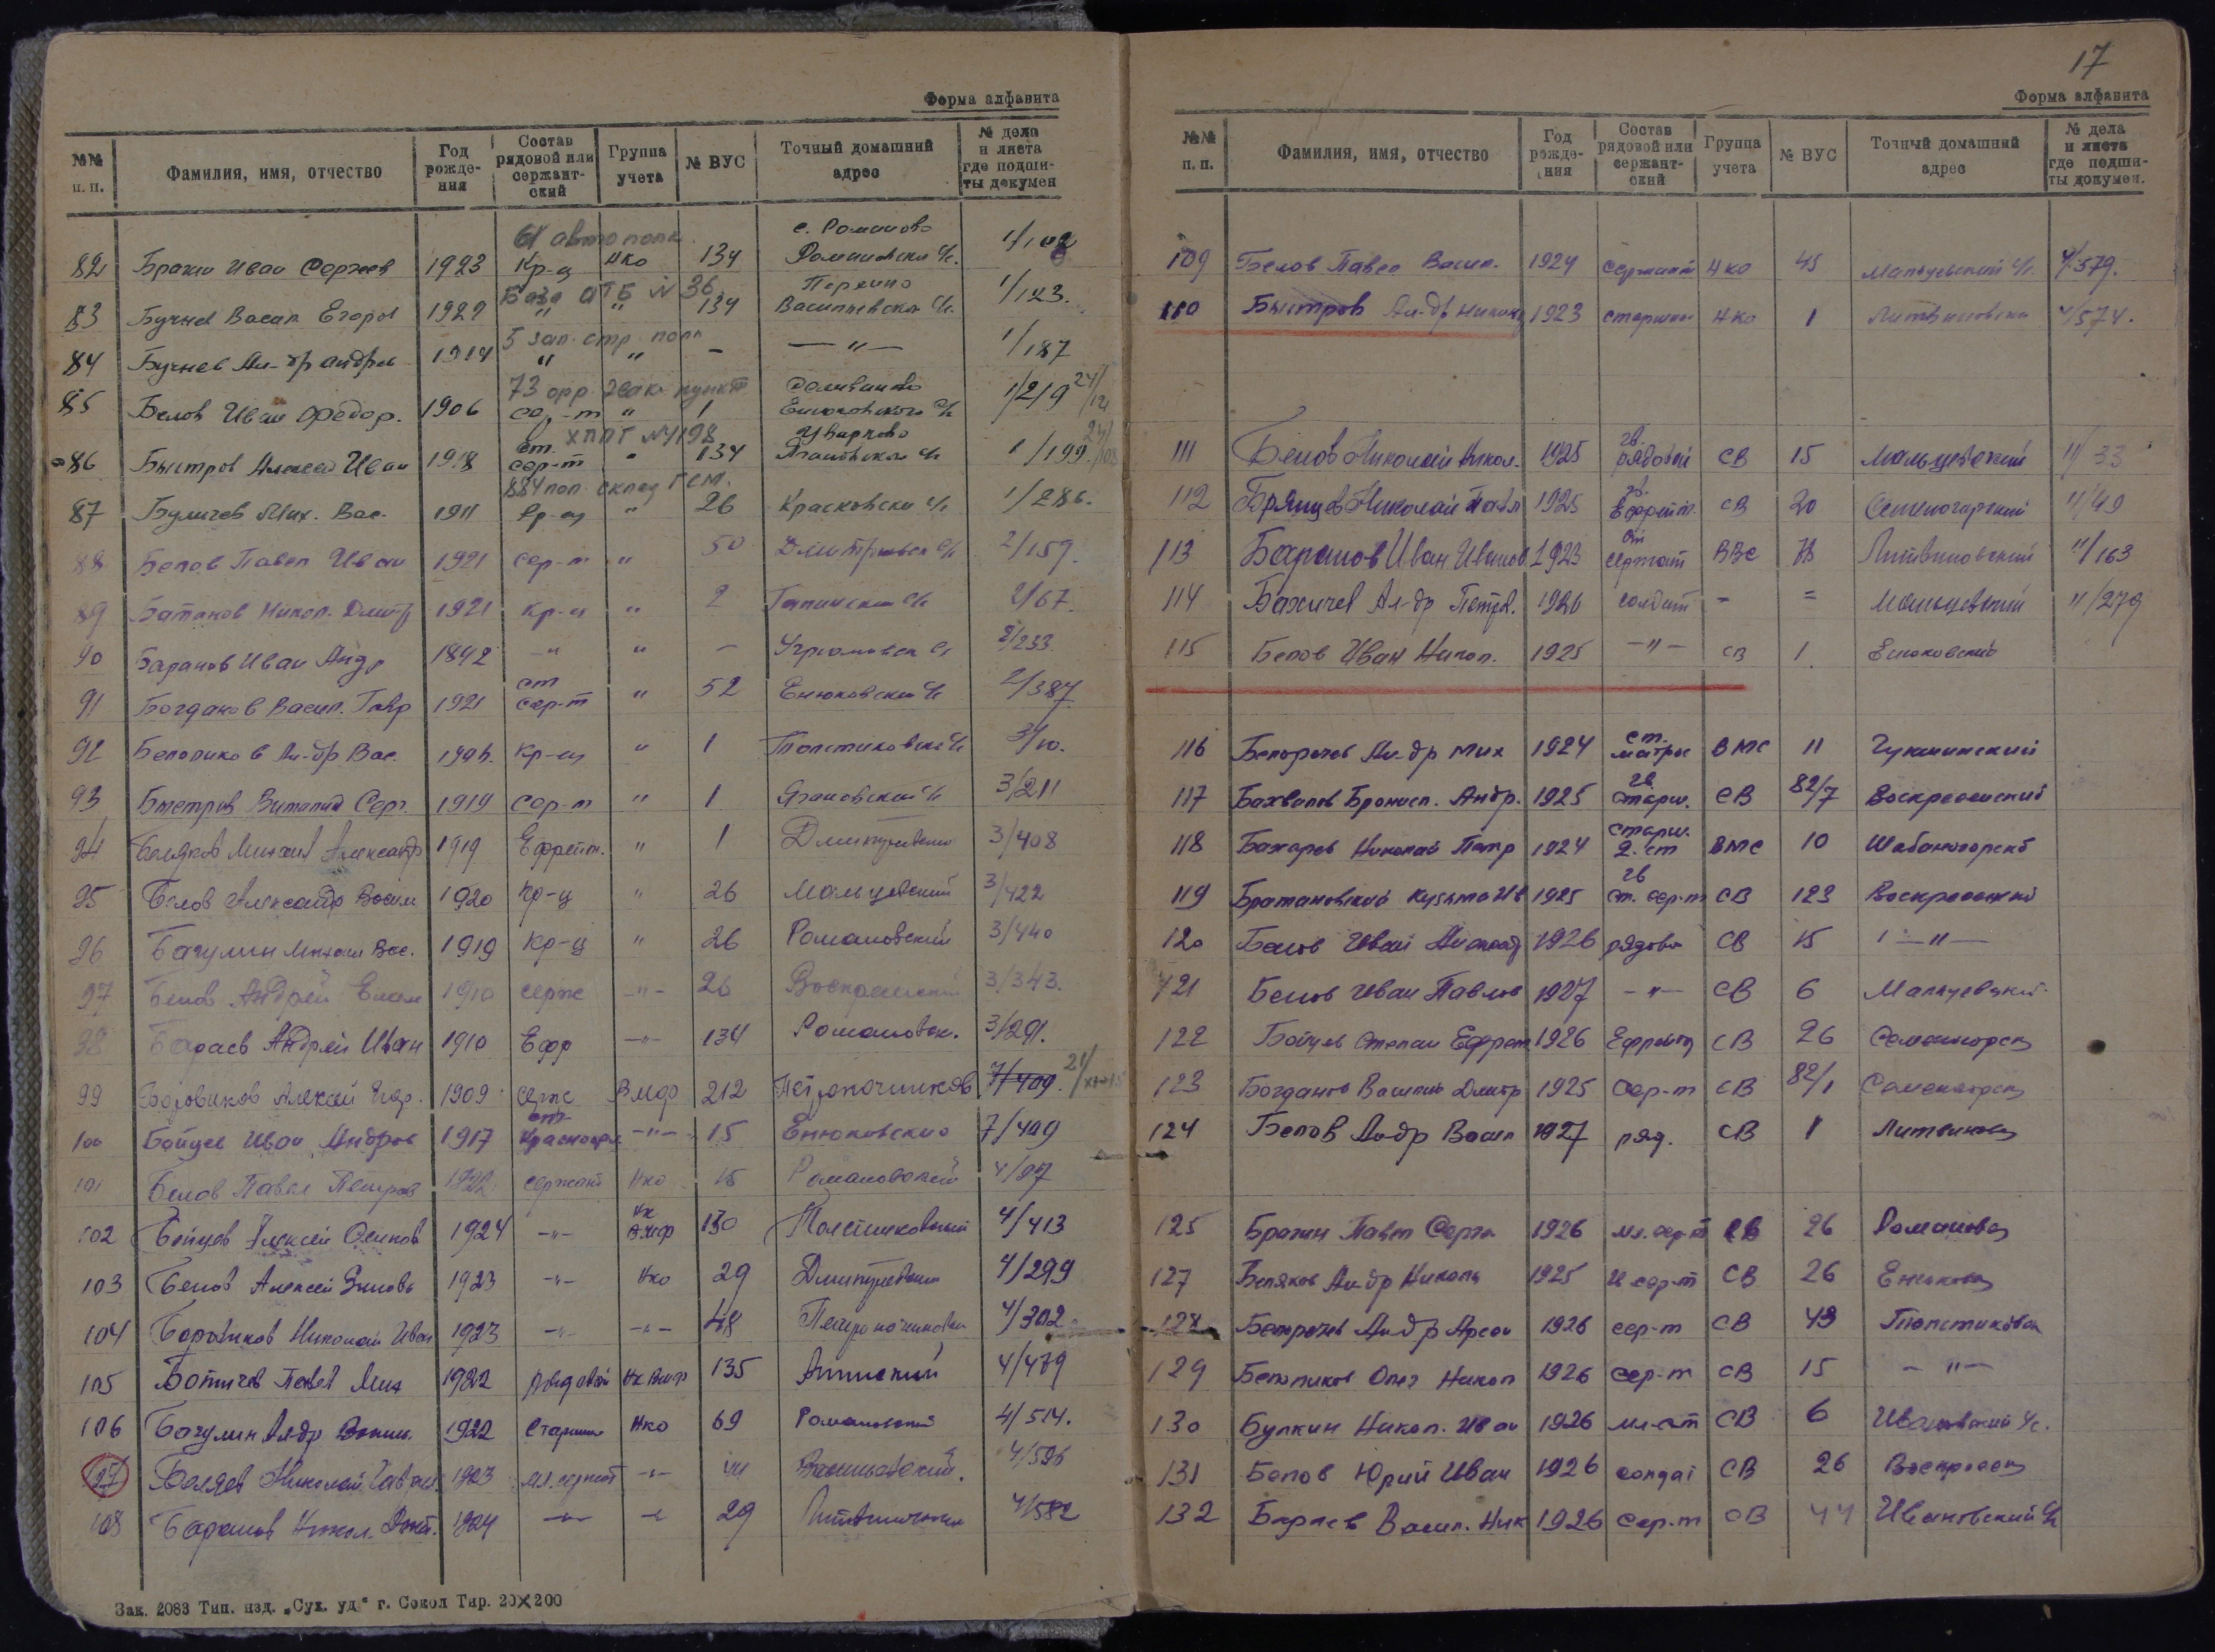 Форма алфавита
№№ п. п. Фамилия, имя, отчество Год рождения Состав рядовой или сержантский Группа учета № ВУС Точный домашний адрес № дела и листа где подшиты докумен
61 автополк с. Романово
82 Брагин Иван Сергеев 1923 Кр-ц НКО 134 Романовский с/с. 1/102
База АТБ № 36
83 Бучнев Васил. Егоров " " 134 Васильевский с/с. 1/123.
5 зап. стр. полк
84 Бучнев Ал-др Андрев 1914 " " - —"— 1/187
73 эвак. пункт Селиваново
85 Белов Иван Федор. 1906 сер-т " 1 Енюковского с/с 1/219
ХППГ № 4198
86 Быстров Алексей Иван 1918 ст. сер-т " 134 Ягановский с/с 1/199
884 поп. склад ГСМ.
87 Буличев Мих. Вас. 1911 Кр-ц " 26 Красковский с/с 1/286.
88 Белов Павел Иван 1921 сер-т " 50 Дмитриевск с/с 2/159.
89 Батанов Никол. Дмитр 1921 Кр-ц " 2 с/с 2/67.
90 Баранов Иван Андр 1892 —" " - Угрюмовск с/с 2/233
91 Богданов Васил. Гавр 1921 ст сер-т " 52 Енюковский с/с 2/387
92 Белоликов Ал-др Вас. Кр-ц " 1 Толстиковский с/с 3/10.
93 Быстров Виталий Серг. 1919 сер-т " 1 Ягановский с/с 3/211
94 Беляков Михаил Александр 1919 Ефрейт. " 1 Дмитриевский 3/408
95 Белов Александр Васил 1920 кр-ц " 26 Мальцевский 3/422
96 Бачулин Михаил Вас. 1919 кр-ц " 26 Романовский 3/440
97 Белов Андрей 1910 серж —"— 26 Воскресенский 3/343.
98 Бараев Андрей Иван 1910 Ефр —"— 134 Романовск. 3/291.
99 Боровиков Алексей 1909 серж ВМФ 212 Петропочинков 7/409.
100 Бойцев Иван Андров 1917 ст. —"— 15 Енюковский 7/409
101 Белов Павел Петров 1922 сержант НКО 15 Романовский 4/27
102 Бойцов Алексей Осипов 1924 —"— НК ВМФ 130 Толстиковский 4/413
103 Белов Алексей 1923 —"— НКО 29 Дмитриевский 4/299
104 Боровиков Николай Иван 1923 —"— —"— 48 Петропочинковск 4/302
105 Ботичев Павел Мих 1922 Рядовой НК ВМФ 135 4/479
106 Бачулин Ал-др 1922 Старшина НКО 69 Романовский 4/514.
107 Беляев Николай Гаврил. 1923 мл. сержант —"— 44 Васильевский. 4/596
108 Баранов Никол. 1924 —"— —"— 29 Литвиновский 4/582
Зак. 2083 Тип. изд. „Сух. уд“ г. Сокол Тир. 20×200
17
Форма алфавита
№№ п. п. Фамилия, имя, отчество Год рождения Состав рядовой или сержантский Группа учета № ВУС Точный домашний адрес № дела и листа где подшиты докумен.
109 Белов Павел Васил. 1924 сержант НКО 45 Мальцевский с/с. 4/579.
110 Быстров Ал-др Никол 1923 старшина НКО 1 Литвиновский 4/574.
111 Белов Николай Никол. 1925 гв. рядовой СВ 15 Мальцевский 11/33
112 Брянцев Николай Павл 1925 гв. Ефрейт. СВ 20 Семеногорский 11/49
113 Баранов Иван Иванов. 1923 ст сержант ВВС Литвиновский 11/163
114 Бахичев Ал-др Петров. 1926 солдат - = Мальцевский 11/279
115 Белов Иван Никол. 1925 —"— СВ 1. Енюковский
116 Белорочев Ал-др Мих 1924 ст. матрос ВМС 11 Чукшинский
117 Бахвалов Бронисл. Андр. 1925 гв. старш. СВ 82/7 Воскресенский
118 Бахарев Николай Петр 1924 старш. 2. ст ВМС 10 Шабаногорский
119 Братановский Кузьма Ив 1925 гв ст. сер-т СВ 123 Воскресенский
120 Белов Иван 1926 рядовой СВ 15 —"—
121 Белов Иван Павлов 1927 —"— СВ 6 Мальцевский
122 Бойцев Степан Ефрем 1926 Ефрейтор СВ 26 Семеногорск
123 Богданов Василий Дмитр 1925 сер-т СВ 82/1 Семеногорск
124 Белов Ал-др Васил 1927 ряд. СВ 1 Литвиновск
125 Брагин Павел Серге 1926 мл. сер-т СВ 26 Романовск
127 Беляков Ал-др Никола 1925 сер-т СВ 26 Енюковск
128 Белорочев Ал-др Арсен 1926 сер-т СВ 43 Толстиковск
129 Белоликов Олег Никол 1926 сер-т СВ 15 —"—
130 Булкин Никол. Иван 1926 мл. с-т СВ 6 Ивановский с/с.
131 Белов Юрий Иван 1926 солдат СВ 26 Воскресенск
132 Бараев Васил. Ник 1926 сер-т СВ 44 Ивановский с/с